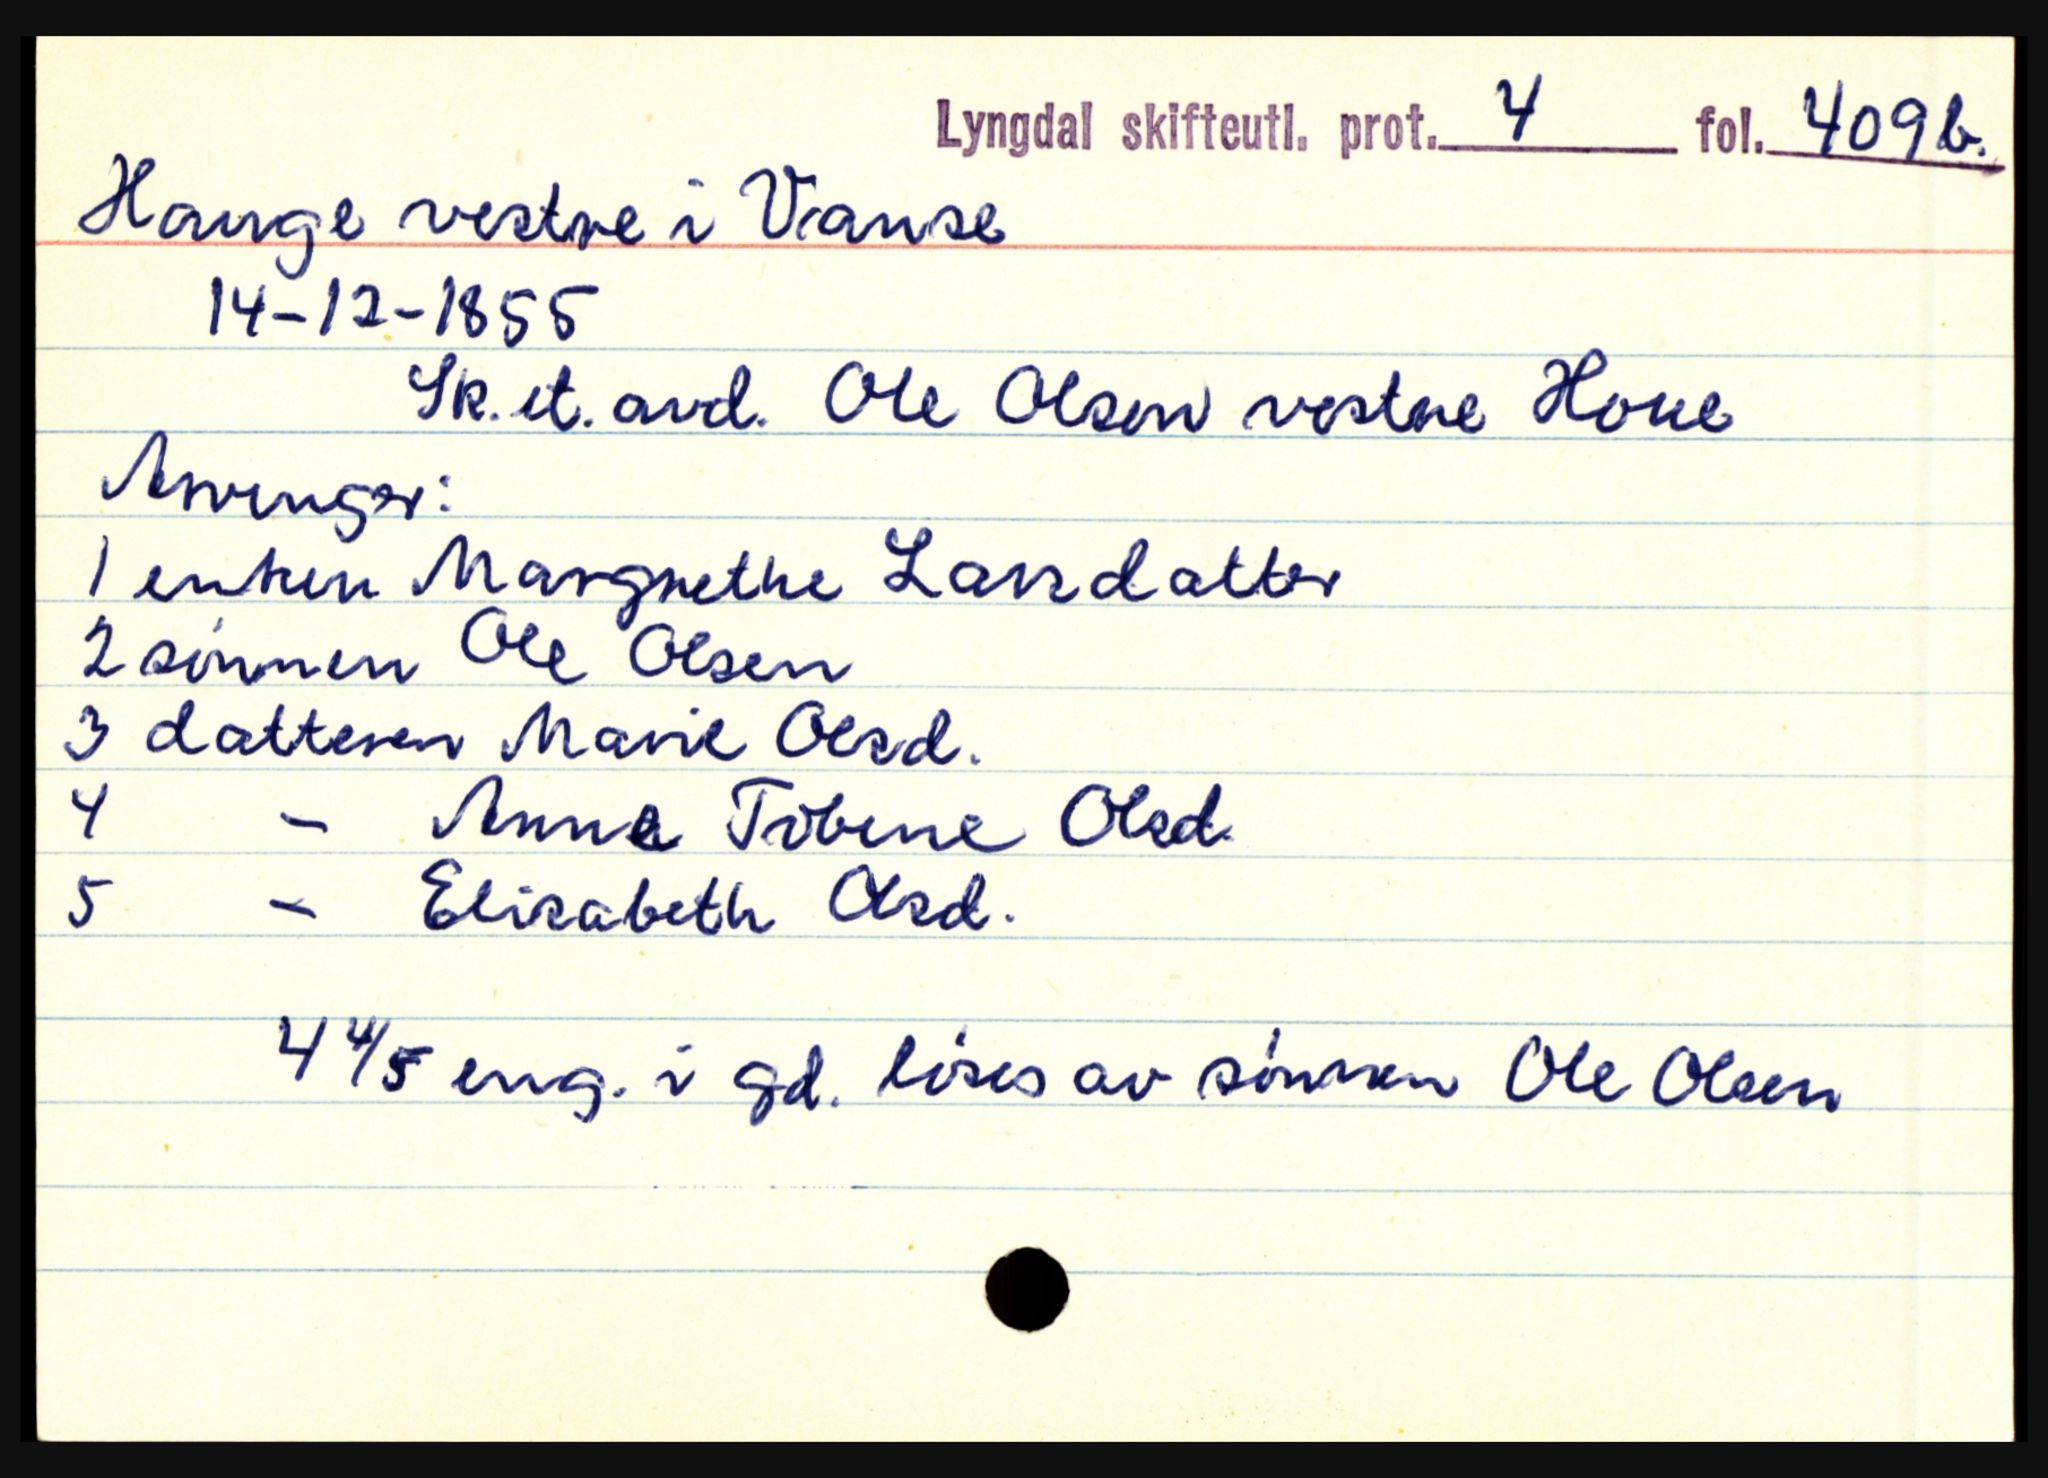 Lyngdal skifteutl. prot. 4 fol. 409b.
Hauge vestre i Vanse
14-12-1855
Sk. et. avd. Ole Olsen vestre Houe
Arvinger:
1 enken Margrethe Larsdatter
2 sønnen Ole Olsen
3 datteren Marie Olsd.
4 - Anne Tobine Olsd.
5 - Elisabeth Olsd.
4 4/5 eng. i gd. løses av sønnen Ole Olsen